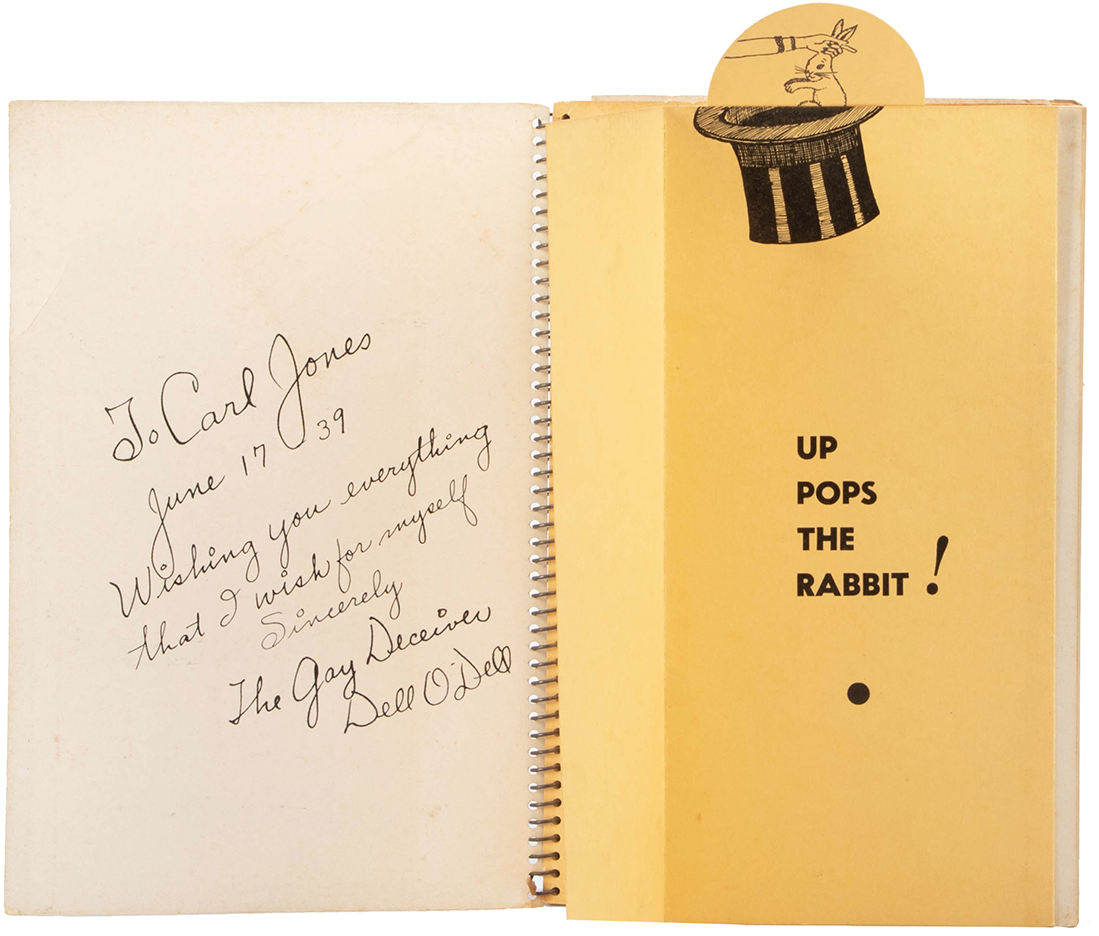 To Carl Jones
June 17 39
Wishing you everything
that I wish for myself
Sincerely
The Gay Deceiver
Dell O'Dell
UP
POPS
THE
RABBIT!